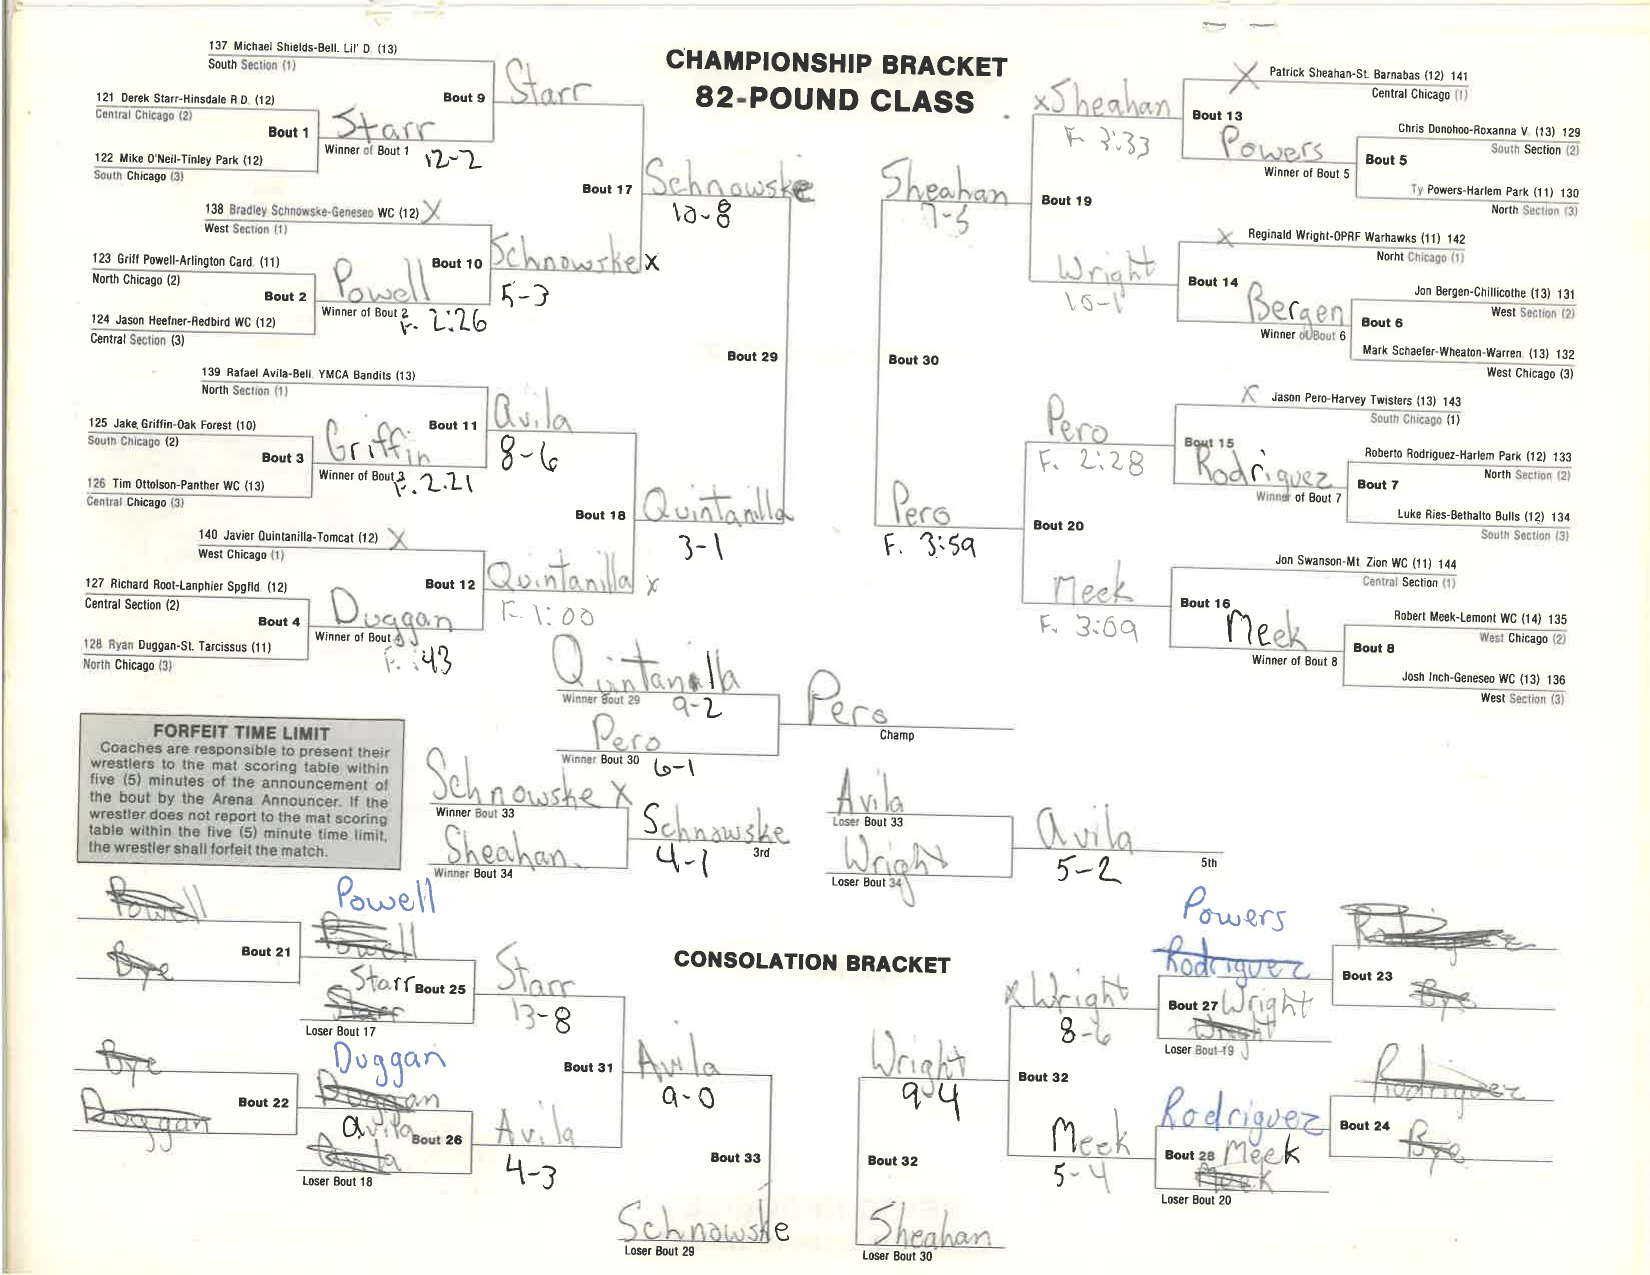 CHAMPIONSHIP BRACKET
82-POUND CLASS
137 Michael Shields-Bell. Lil' D. (13)
South Section (1)
Bout 9
Starr
121 Derek Starr-Hinsdale R.D. (12)
Central Chicago (2)
Bout 1
Starr
Winner of Bout 1
12-2
122 Mike O'Neil-Tinley Park (12)
South Chicago (3)
Bout 17
Schnowske
10-8
138 Bradley Schnowske-Geneseo WC (12) X
West Section (1)
Bout 10
Schnowske X
5-3
123 Griff Powell-Arlington Card. (11)
North Chicago (2)
Bout 2
Powell
Winner of Bout 2
F. 2:26
124 Jason Heefner-Redbird WC (12)
Central Section (3)
Bout 29
139 Rafael Avila-Bell. YMCA Bandits (13)
North Section (1)
Bout 11
Avila
8-6
125 Jake Griffin-Oak Forest (10)
South Chicago (2)
Bout 3
Griffin
Winner of Bout 3
F. 2.21
126 Tim Ottolson-Panther WC (13)
Central Chicago (3)
Bout 18
Quintanilla
3-1
140 Javier Quintanilla-Tomcat (12) X
West Chicago (1)
Bout 12
Quintanilla x
F. 1:00
127 Richard Root-Lanphier Spgfld. (12)
Central Section (2)
Bout 4
Duggan
Winner of Bout 4
F. :43
128 Ryan Duggan-St. Tarcissus (11)
North Chicago (3)
X Patrick Sheahan-St. Barnabas (12) 141
Central Chicago (1)
xSheahan
F 3:33
Bout 13
Powers
Winner of Bout 5
Chris Donohoo-Roxanna V. (13) 129
South Section (2)
Bout 5
Ty Powers-Harlem Park (11) 130
North Section (3)
Sheahan
7-5
Bout 19
X Reginald Wright-OPRF Warhawks (11) 142
Norht Chicago (1)
Wright
10-1
Bout 14
Bergen
Winner of Bout 6
Jon Bergen-Chillicothe (13) 131
West Section (2)
Bout 6
Mark Schaefer-Wheaton-Warren. (13) 132
West Chicago (3)
Bout 30
X Jason Pero-Harvey Twisters (13) 143
South Chicago (1)
Pero
F. 2:28
Bout 15
Rodriguez
Winner of Bout 7
Roberto Rodriguez-Harlem Park (12) 133
North Section (2)
Bout 7
Luke Ries-Bethalto Bulls (12) 134
South Section (3)
Pero
F. 3:59
Bout 20
Jon Swanson-Mt. Zion WC (11) 144
Central Section (1)
Meek
F. 3:09
Bout 16
Meek
Winner of Bout 8
Robert Meek-Lemont WC (14) 135
West Chicago (2)
Bout 8
Josh Inch-Geneseo WC (13) 136
West Section (3)
Quintanilla
Winner Bout 29
9-2
Pero
Champ
Pero
Winner Bout 30
6-1
FORFEIT TIME LIMIT
Coaches are responsible to present their
wrestlers to the mat scoring table within
five (5) minutes of the announcement of
the bout by the Arena Announcer. If the
wrestler does not report to the mat scoring
table within the five (5) minute time limit,
the wrestler shall forfeit the match.
Schnowske X
Winner Bout 33
Schnowske
3rd
4-1
Sheahan
Winner Bout 34
Avila
Loser Bout 33
Avila
5th
5-2
Wright
Loser Bout 34
CONSOLATION BRACKET
Powell
Bye
Bout 21
Powell
Powell
Starr
Bout 25
Starr
Loser Bout 17
Starr
13-8
Bye
Duggan
Bout 22
Duggan
Duggan
Avila
Bout 26
Avila
Loser Bout 18
Avila
4-3
Bout 31
Avila
9-0
Bout 33
Schnowske
Loser Bout 29
Powers
Rodriguez
Bout 27
Wright
Wright
Loser Bout 19
Rodriguez
Bye
Bout 23
X Wright
8-6
Wright
9-4
Bout 32
Rodriguez
Bout 28
Meek
Meek
Loser Bout 20
Rodriguez
Bye
Bout 24
Meek
5-4
Bout 32
Sheahan
Loser Bout 30